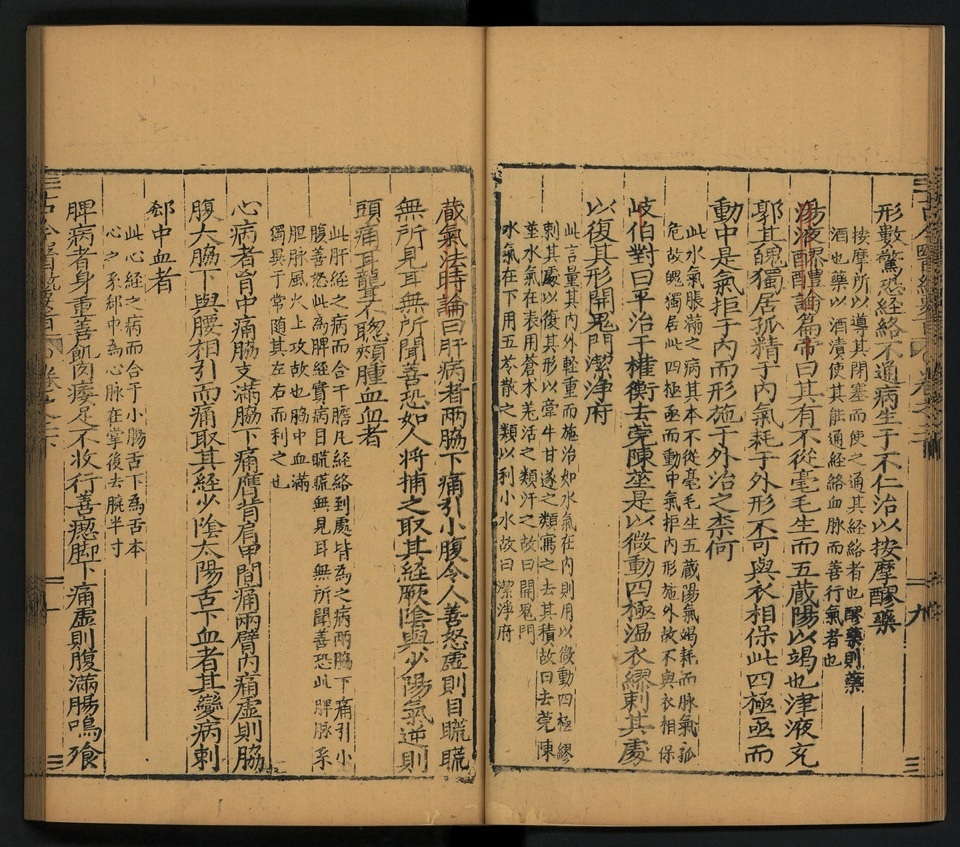 形數驚恐經絡不通病生于不仁治以按摩醪藥
按摩所以導其閉塞而使之通其經絡者也醪藥則藥
酒也藥以酒漬使其能通經絡血脉而善行氣者也
湯液醪醴論篇帝曰其有不從毫毛生而五蔵陽以竭也津液充
郭其魄獨居孤精于內氣耗于外形不可與衣相保此四極亟而
動中是氣拒于內而形施于外治之柰何
此水氣脹滿之病其本不從毫毛生五蔵陽氣竭耗而脉氣孤
危故魄獨居此四極亟而動中氣拒內形施外故不與衣相保
岐伯對曰平治于權衡去菀陳莝是以微動四極温衣繆刺其處
以復其形開鬼門潔淨府
此言量其內外輕重而施治如水氣在內則用以微動四極繆
刺其處以復其形以牽牛甘遂之類瀉之去其積故曰去菀陳
莝水氣在表用蒼朮羌活之類汗之故曰開鬼門
水氣在下用五苓散之類以利小水故曰潔淨府
蔵氣法時論曰肝病者兩脇下痛引小腹令人善怒虛則目䀮䀮
無所見耳無所聞善恐如人將捕之取其經厥陰與少陽氣逆則
頭痛耳聾不聦頰腫血血者
此肝經之病而合于膽凡經絡到處皆為之病兩脇下痛引小
腹善怒此為脾經實病目䀮䀮無見耳無所聞善恐此脾脉系
胆脉風火上攻故也脇中血滿
獨異于常随其左右而利之也
心病者胷中痛脇支滿脇下痛膺背肩甲間痛兩臂內痛虛則脇
腹大脇下與腰相引而痛取其經少陰太陽舌下血者其變病刺
郄中血者
此心經之病而合于小腸舌下為舌本
心之系郄中為心脉在掌後去腕半寸
脾病者身重善飢肉痿足不收行善瘛脚下痛虛則腹滿腸鳴飱